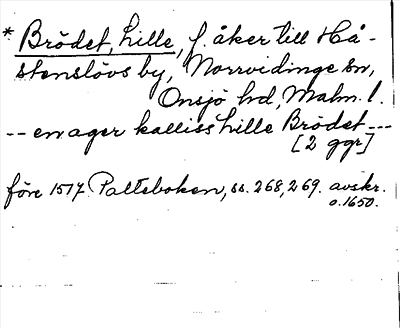 * Brödet, hille, f. åker till Hå-
stenslövs by, Norrvidinge sn,
Onsjö hd, Malm. l.
-- en ager kalliss hille Brödet ---
[2 ggr]
före 1517. Palteboken, ss. 268, 269. avskr.
o. 1650.